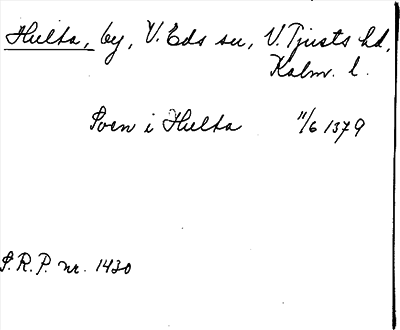 Hulta, by, V. Eds sn, V. Tjusts hd,
Kalm. l.
Sven i Hulta 11/6 1379
S.R.P. nr. 1430